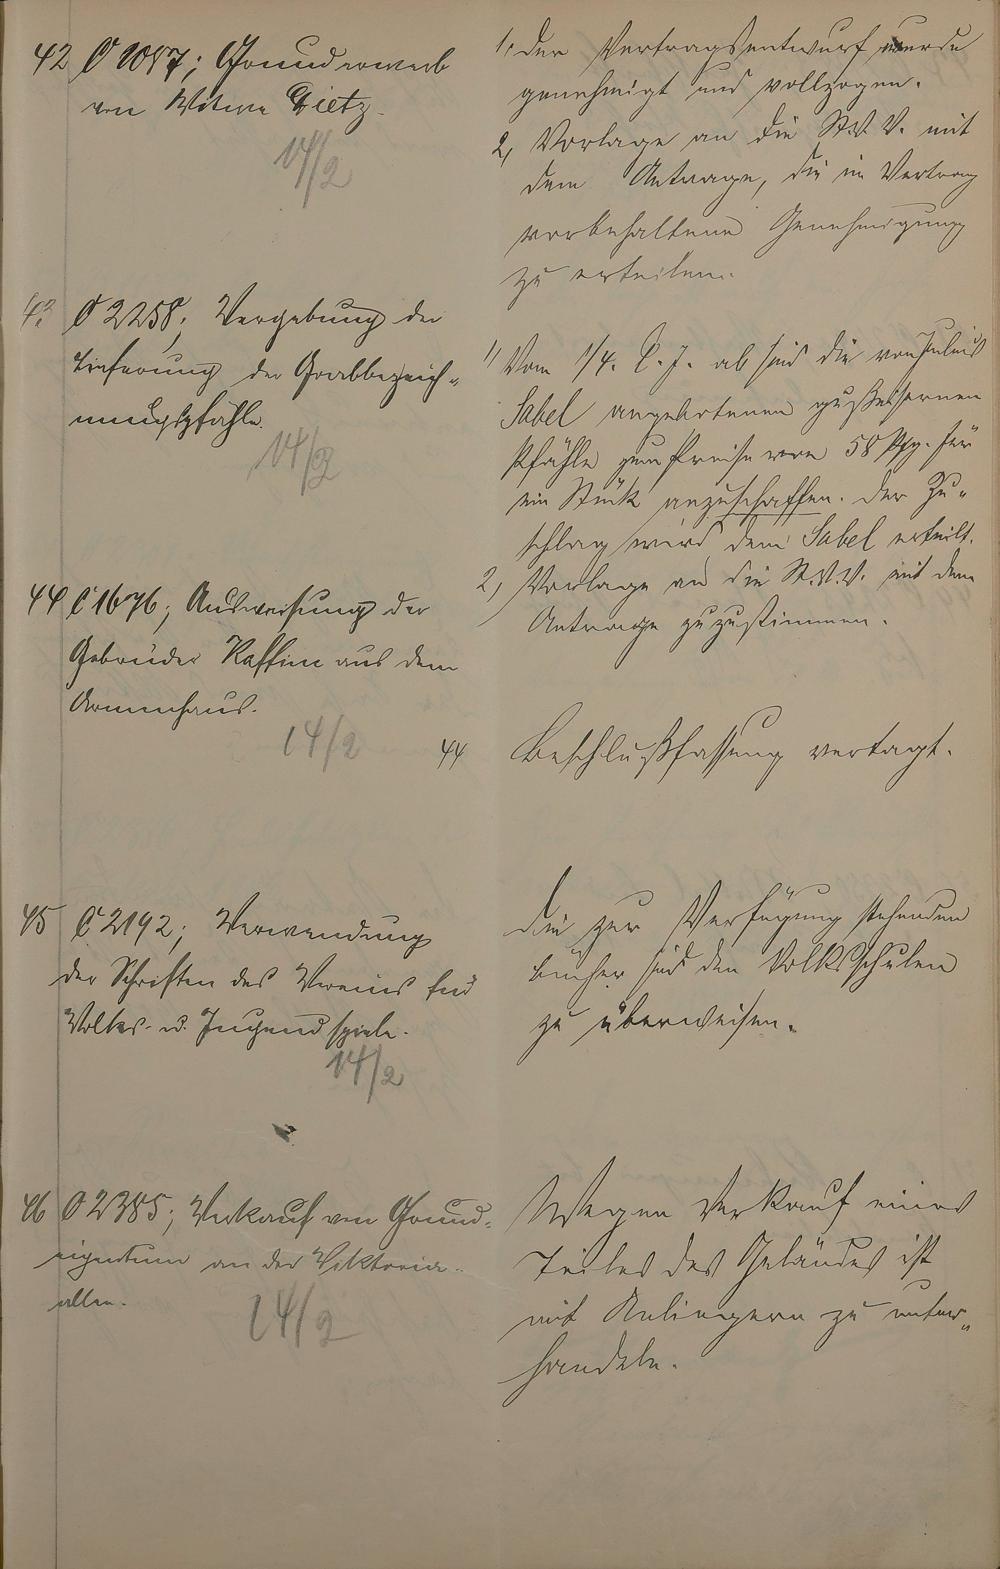 42 C 1087; Grunderwerb
von Witwe Dietz.
14/2
1. Der Vertragsentwurf wurde
genehmigt und vollzogen.
2, Vorlage an die St.V.V. mit
dem Antrage, die im Vertrag
vorbehaltene Genehmigung
zu erteilen.
43 C 2258; Vergebung der
Lieferung der Grabbezeich-
nungspfähle.
14/2
1, Vom 1/4. d. J. ab sind die von Julius
Sabel angebotenen gußeisernen
Pfähle zum Preise von 58 Pfg. für
ein Stück anzuschaffen. Der Zu-
schlag wird dem Sabel erteilt.
2, Vorlage an die St.V.V. mit dem
Antrage zuzustimmen.
44 C 1676; Ausweisung der
Gebrüder aus dem
Armenhaus.
14/2
44 Beschlußfassung vertagt.
45 C 2192; Verwendung
der Schriften des Vereins für
Volks- u. Jugendspiele.
14/2
Die zur Verfügung stehenden
Bücher sind den Volksschulen
zu überweisen.
46 C 2385; Verkauf von Grund-
eigentum an der Viktoria-
allee.
14/2
Wegen Verkauf eines
Teiles des Geländes ist
mit Anliegern zu unter-
handeln.